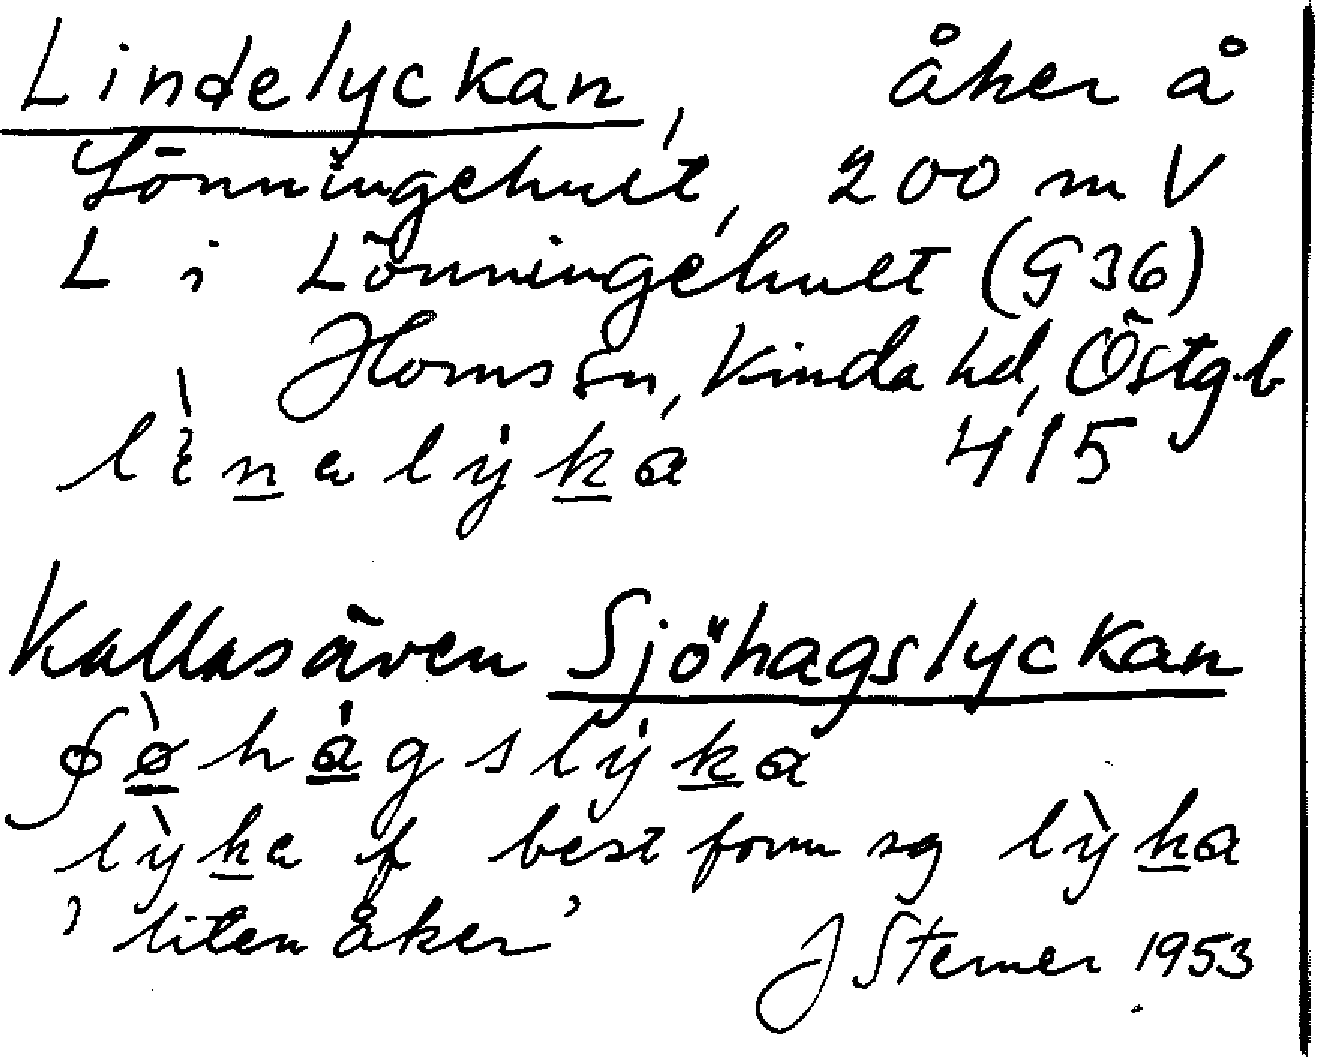 Lindelyckan, åker å
Lönningehult, 200 m V
L i Lönningehult (G36)
Horns sn, Kinda hd, Östg.l.
415
Kallas även Sjöhagslyckan
f best form sg
'liten åker'
J Sterner 1953